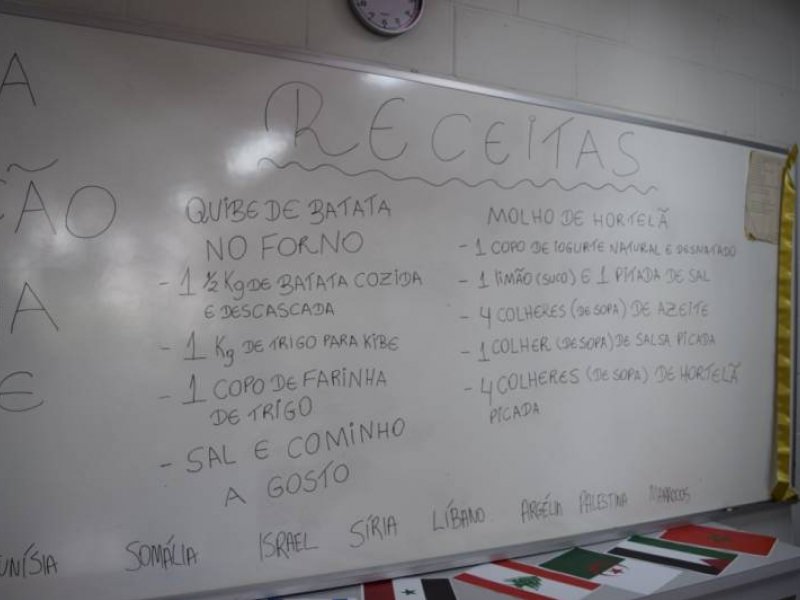 A
ÇÃO
A
E
RECEITAS
QUIBE DE BATATA
NO FORNO
- 1 ½ Kg DE BATATA COZIDA
E DESCASCADA
- 1 Kg DE TRIGO PARA KIBE
- 1 COPO DE FARINHA
DE TRIGO
- SAL E COMINHO
A GOSTO
MOLHO DE HORTELÃ
- 1 COPO DE IOGURTE NATURAL E DESNATADO
- 1 LIMÃO (SUCO) E 1 PITADA DE SAL
- 4 COLHERES (DE SOPA) DE AZEITE
- 1 COLHER (DE SOPA) DE SALSA PICADA
- 4 COLHERES (DE SOPA) DE HORTELÃ
PICADA
UNÍSIA SOMÁLIA ISRAEL SÍRIA LÍBANO ARGÉLIA PALESTINA MARROCOS